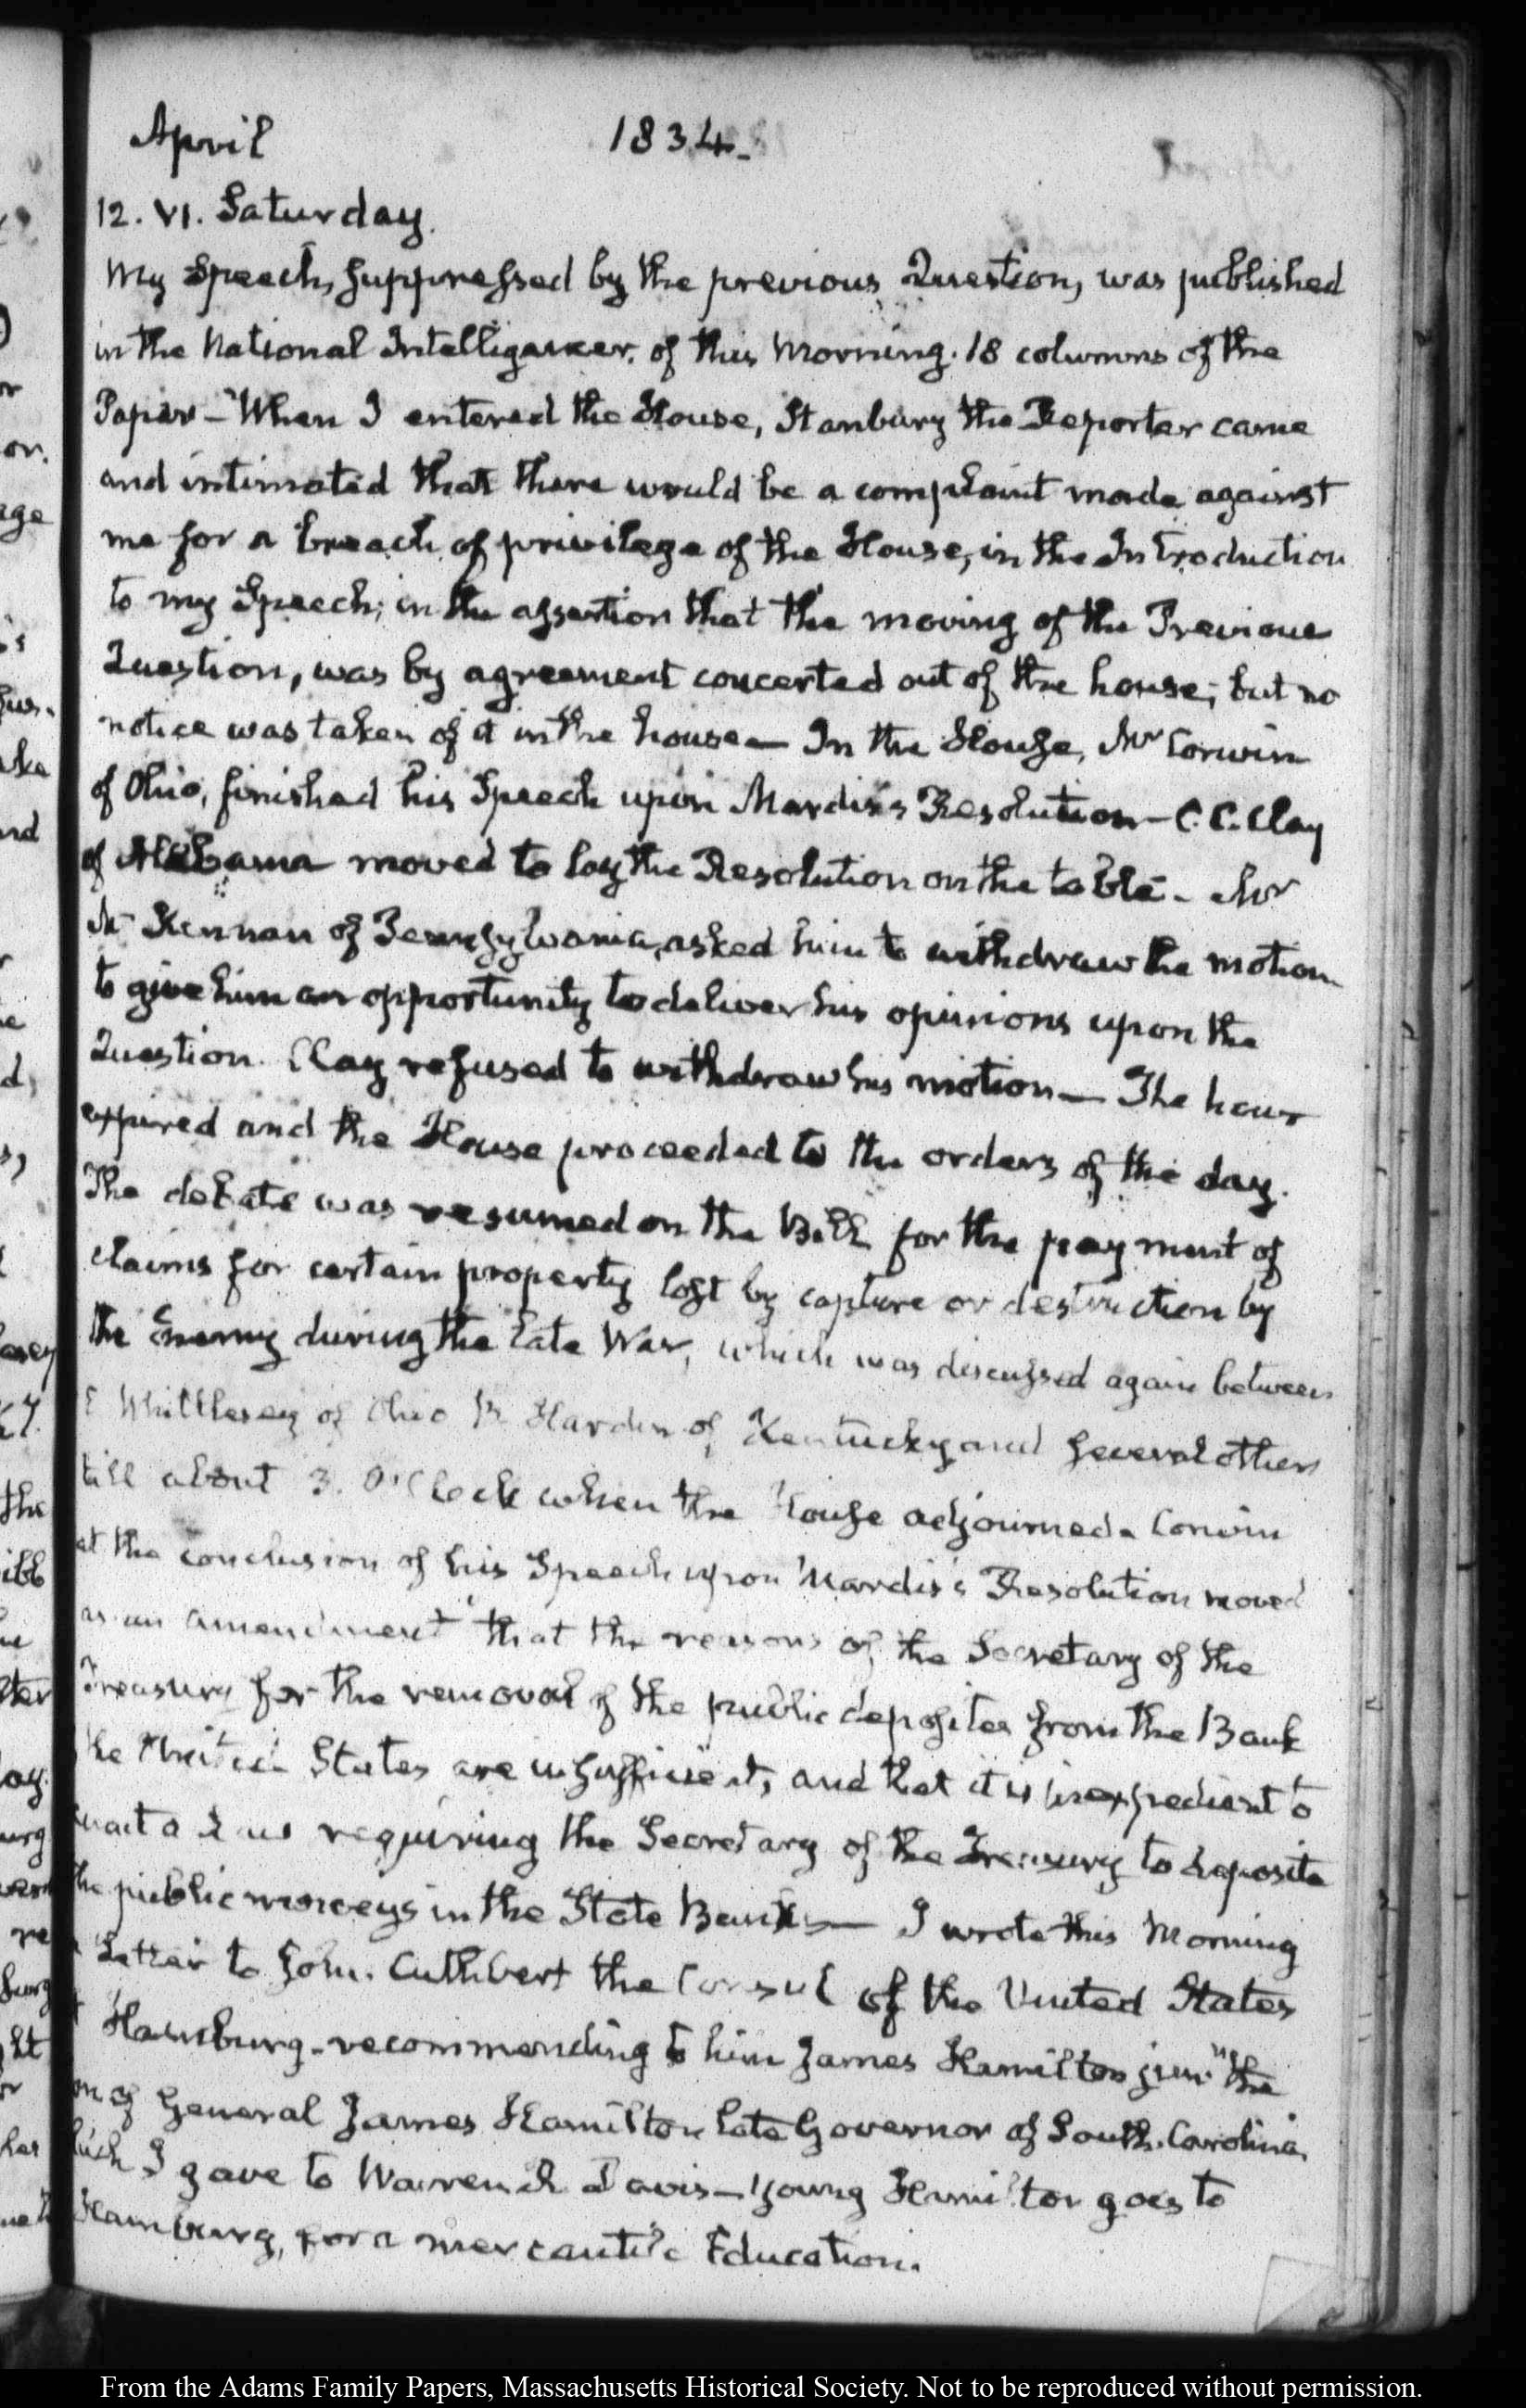 April 1834.
12. VI. Saturday.
My Speech, suppressed by the previous Question, was published
in the National Intelligencer, of this Morning. 18 columns of the
Paper — When I entered the House, Stanbury the Reporter came
and intimated that there would be a complaint made against
me for a breach of privilege of the House, in the Introduction
to my Speech; in the assertion that the moving of the Previous
Question, was by agreement concerted out of the house; but no
notice was taken of it in the house — In the House, Mr Corwin
of Ohio, finished his Speech upon Mardis's Resolution — C. C. Clay
of Alabama moved to lay the Resolution on the table — Mr
Mc Kennan of Pennsylvania, asked him to withdraw the motion
to give him an opportunity to deliver his opinions upon the
Question. Clay refused to withdraw his motion — The hour
expired and the House proceeded to the orders of the day.
The debate was resumed on the Bill for the payment of
claims for certain property lost by capture or destruction by
the Enemy during the late War, which was discussed again between
E Whittlesey of Ohio R. Hardin of Kentucky and several others
till about 3. O'Clock when the House adjourned. Corwin
at the conclusion of his Speech upon Mardis's Resolution moved
as an amendment that the reasons of the Secretary of the
Treasury for the removal of the public deposites from the Bank
the United States are insufficient, and that it is inexpedient to
enact a Law requiring the Secretary of the Treasury to deposite
the public moneys in the State Banks — I wrote this Morning
Letter to John Cuthbert the Consul of the United States
Hamburg — recommending to him James Hamilton junr. the
son of General James Hamilton late Governor of South-Carolina,
which I gave to Warren R Davis — young Hamilton goes to
Hamburg, for a mercantile Education.
From the Adams Family Papers, Massachusetts Historical Society. Not to be reproduced without permission.